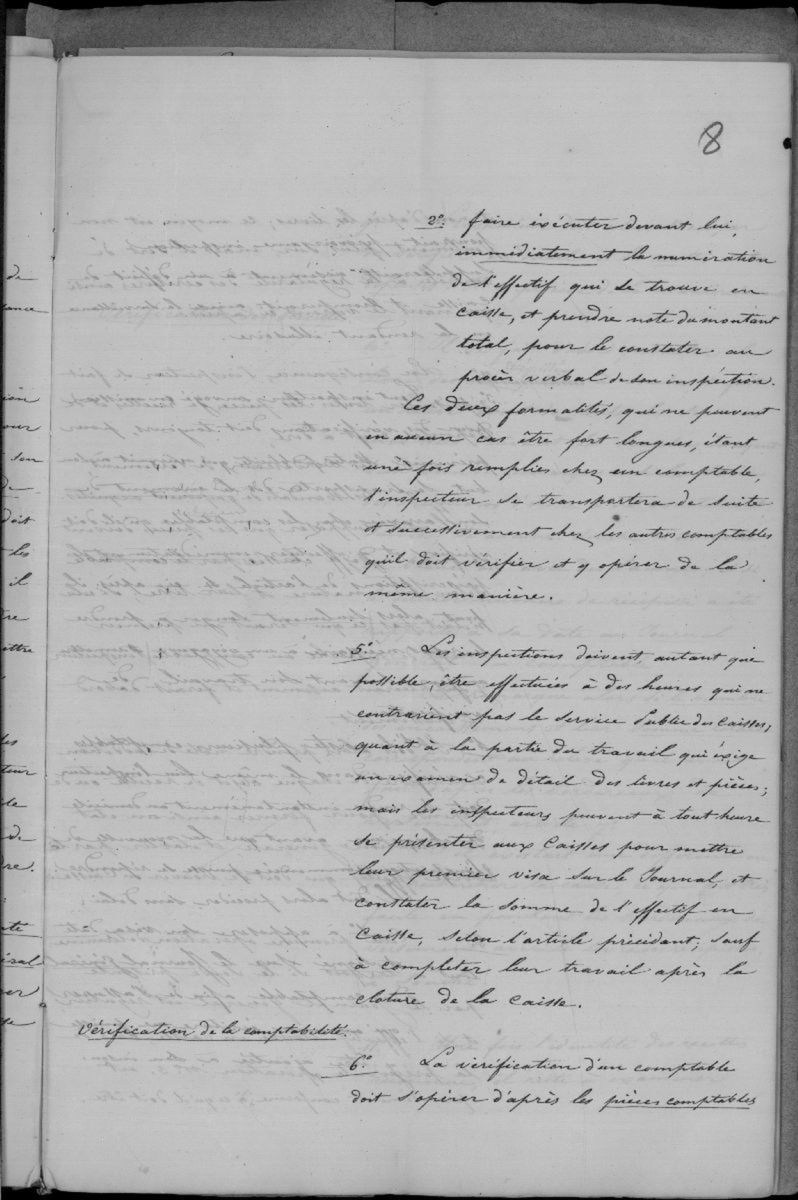 8
2º. faire exécuter devant lui,
immédiatement la numération
de l'effectif qui se trouve en
caisse, et prendre note du montant
total, pour le constater au
procès verbal de son inspéction.
Ces deux formalités, qui ne peuvent
en aucun cas être fort longues, étant
une fois remplies chez un comptable,
l'inspecteur se transportera de suite
et successivement chez les autres comptables
qu'il doit vérifier et y opérer de la
même manière.
5º. Les inspections doivent, autant que
possible, être effectuées à des heures qui ne
contrarient pas le service Public des Caisses;
quant à la partie du travail qui éxige
un examen de détail des livres et pièces;
mais les inspecteurs peuvent à tout heure
se présenter aux Caisses pour mettre
leur premier visa sur le Journal, et
constater la somme de l'effectif en
Caisse, selon l'article précédant; sauf
à completer leur travail après la
cloture de la caisse.
Vérification de la comptabilité.
6º. La vérification d'un comptable
doit s'opérer d'après les pièces comptables
de
tance
ion
our
son
de
doit
les
il
dre
ettre
des
teur
le
de
dre.